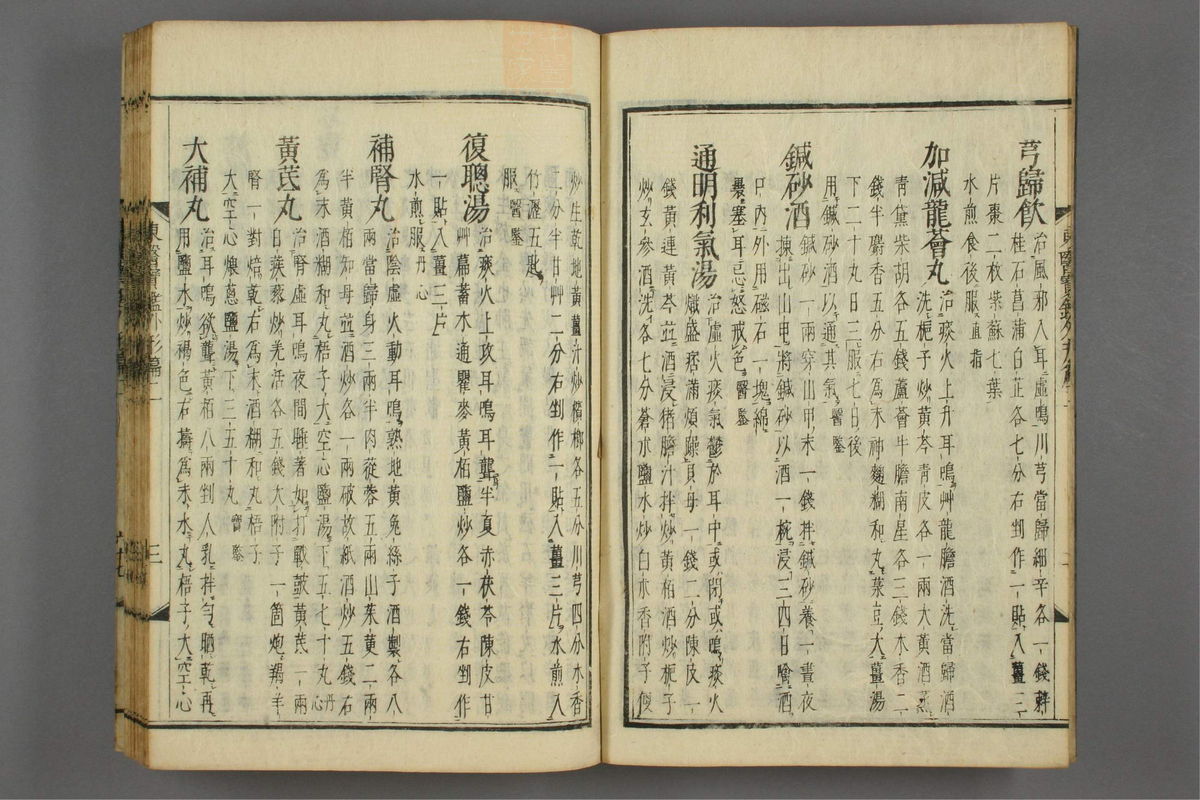 芎歸飮
治風邪入耳虛鳴川芎當歸細辛各一錢辢
桂石菖蒲白芷各七分右剉作一貼入薑三
片棗二枚紫蘇七葉
水煎食後服直指
加減龍薈丸
治痰火上升耳鳴艸龍膽酒洗當歸酒
洗梔子炒黃芩靑皮各一兩大黃酒蒸
靑黛柴胡各五錢蘆薈牛膽南星各三錢木香二
錢半麝香五分右爲末神麴糊和丸菉豆大薑湯
下二十丸日三服七日後
用鍼砂酒以通其氣醫鑒
鍼砂酒
鍼砂一兩穿山甲末一錢拌鍼砂養一晝夜
揀出山甲將鍼砂以酒一椀浸三四日噙酒
口內外用磁石一塊綿
褁塞耳忌怒戒色醫鑒
通明利氣湯
治虛火痰氣鬱於耳中或閉或鳴痰火
熾盛痞滿煩躁貝母一錢二分陳皮一
錢黃連黃芩並酒浸猪膽汁拌炒黃栢酒炒梔子
炒玄參酒洗各七分蒼朮鹽水炒白朮香附子便
炒生乾地黃薑汁炒檳榔各五分川芎四分木香
二分半甘艸二分右剉作一貼入薑三片水煎入
竹瀝五匙
服醫鑒
復聰湯
治痰火上攻耳鳴耳聾半夏赤茯苓陳皮甘
艸萹蓄木通瞿麥黃栢鹽炒各一錢右剉作
一貼入薑三片
水煎服丹心
補腎丸
治陰虛火動耳鳴熟地黃兔絲子酒製各八
兩當歸身三兩半肉蓯蓉五兩山茱萸二兩
半黃栢知母並酒炒各一兩破故紙酒炒五錢右
爲末酒糊和丸梧子大空心鹽湯下五七十丸丹心
黃芪丸
治腎虛耳鳴夜間睡著如打戰皷黃芪一兩
白蒺藜炒羌活各五錢大附子一箇炮羯羊
腎一對焙乾右爲末酒糊和丸梧子
大空心煨葱鹽湯下三五十丸醫鑒
大補丸
治耳鳴欲聾黃栢八兩剉人乳拌勻晒乾再
用鹽水炒褐色右擣爲末水丸梧子大空心
東醫寶鑑外形篇二
三